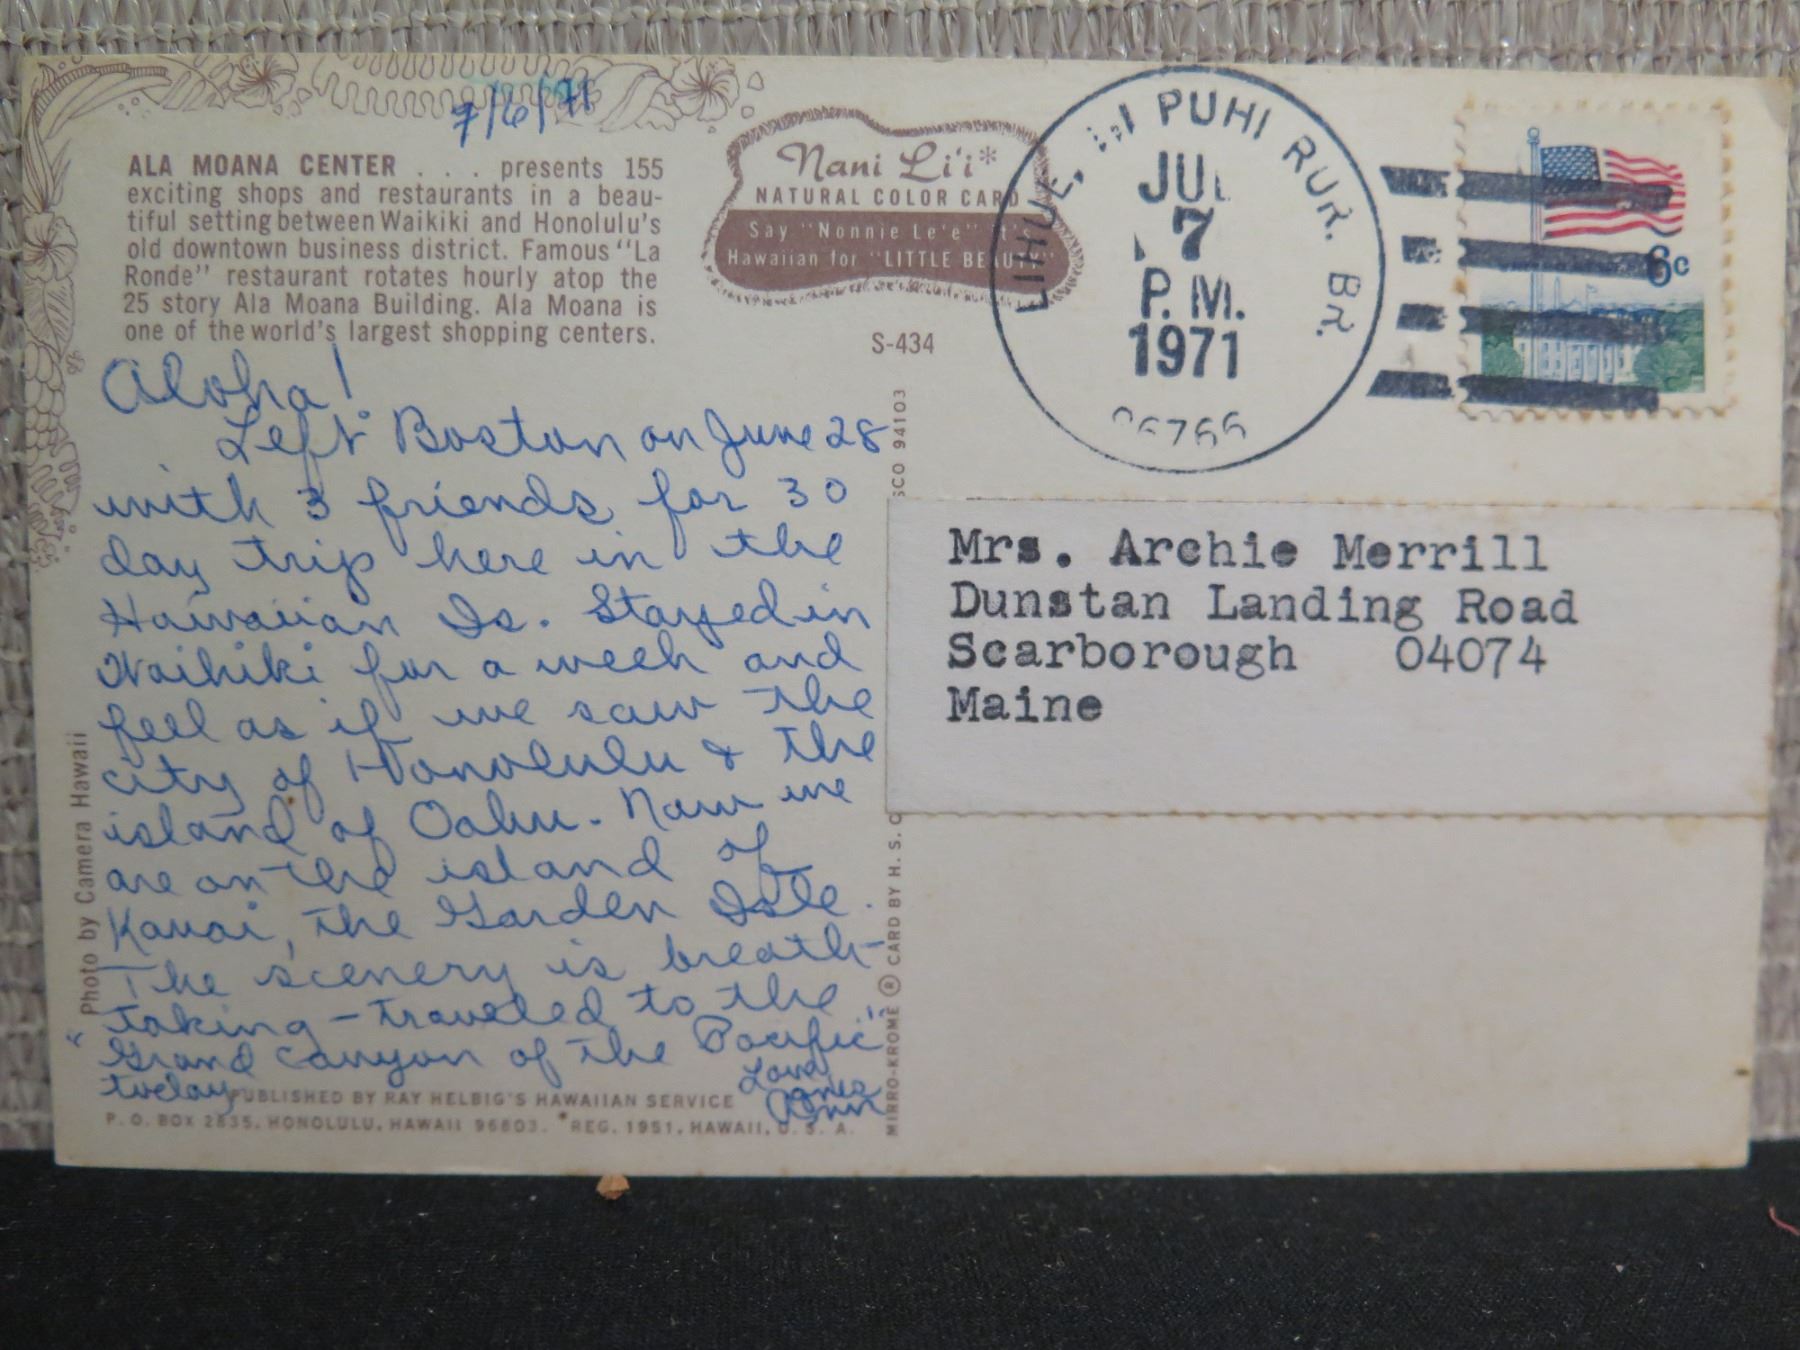 7/6/71
ALA MOANA CENTER . . . presents 155
exciting shops and restaurants in a beau-
tiful setting between Waikiki and Honolulu's
old downtown business district. Famous "La
Ronde" restaurant rotates hourly atop the
25 story Ala Moana Building. Ala Moana is
one of the world's largest shopping centers.
Nani Li'i*
NATURAL COLOR CARD
Say "Nonnie Le'e" It's
Hawaiian for "LITTLE BEAUTY"
S-434
LIHUE, PUHI RUR. BR.
JUL
7
P.M.
1971
96766
6c
Aloha!
Left Boston on June 28
with 3 friends for 30
day trip here in the
Hawaiian Is. Stayed in
Waikiki for a week and
feel as if we saw the
city of Honolulu & the
island of Oahu. Now we
are on the island of
Kauai, the Garden Isle.
The scenery is breath-
taking - traveled to the
"Grand Canyon of the Pacific"
today
Love,
Ann
Mrs. Archie Merrill
Dunstan Landing Road
Scarborough 04074
Maine
Photo by Camera Hawaii
PUBLISHED BY RAY HELBIG'S HAWAIIAN SERVICE
P.O. BOX 2835, HONOLULU, HAWAII 96803. *REG. 1951, HAWAII, U.S.A.
MIRRO-KROME ® CARD BY H. S. C
SCO 94103